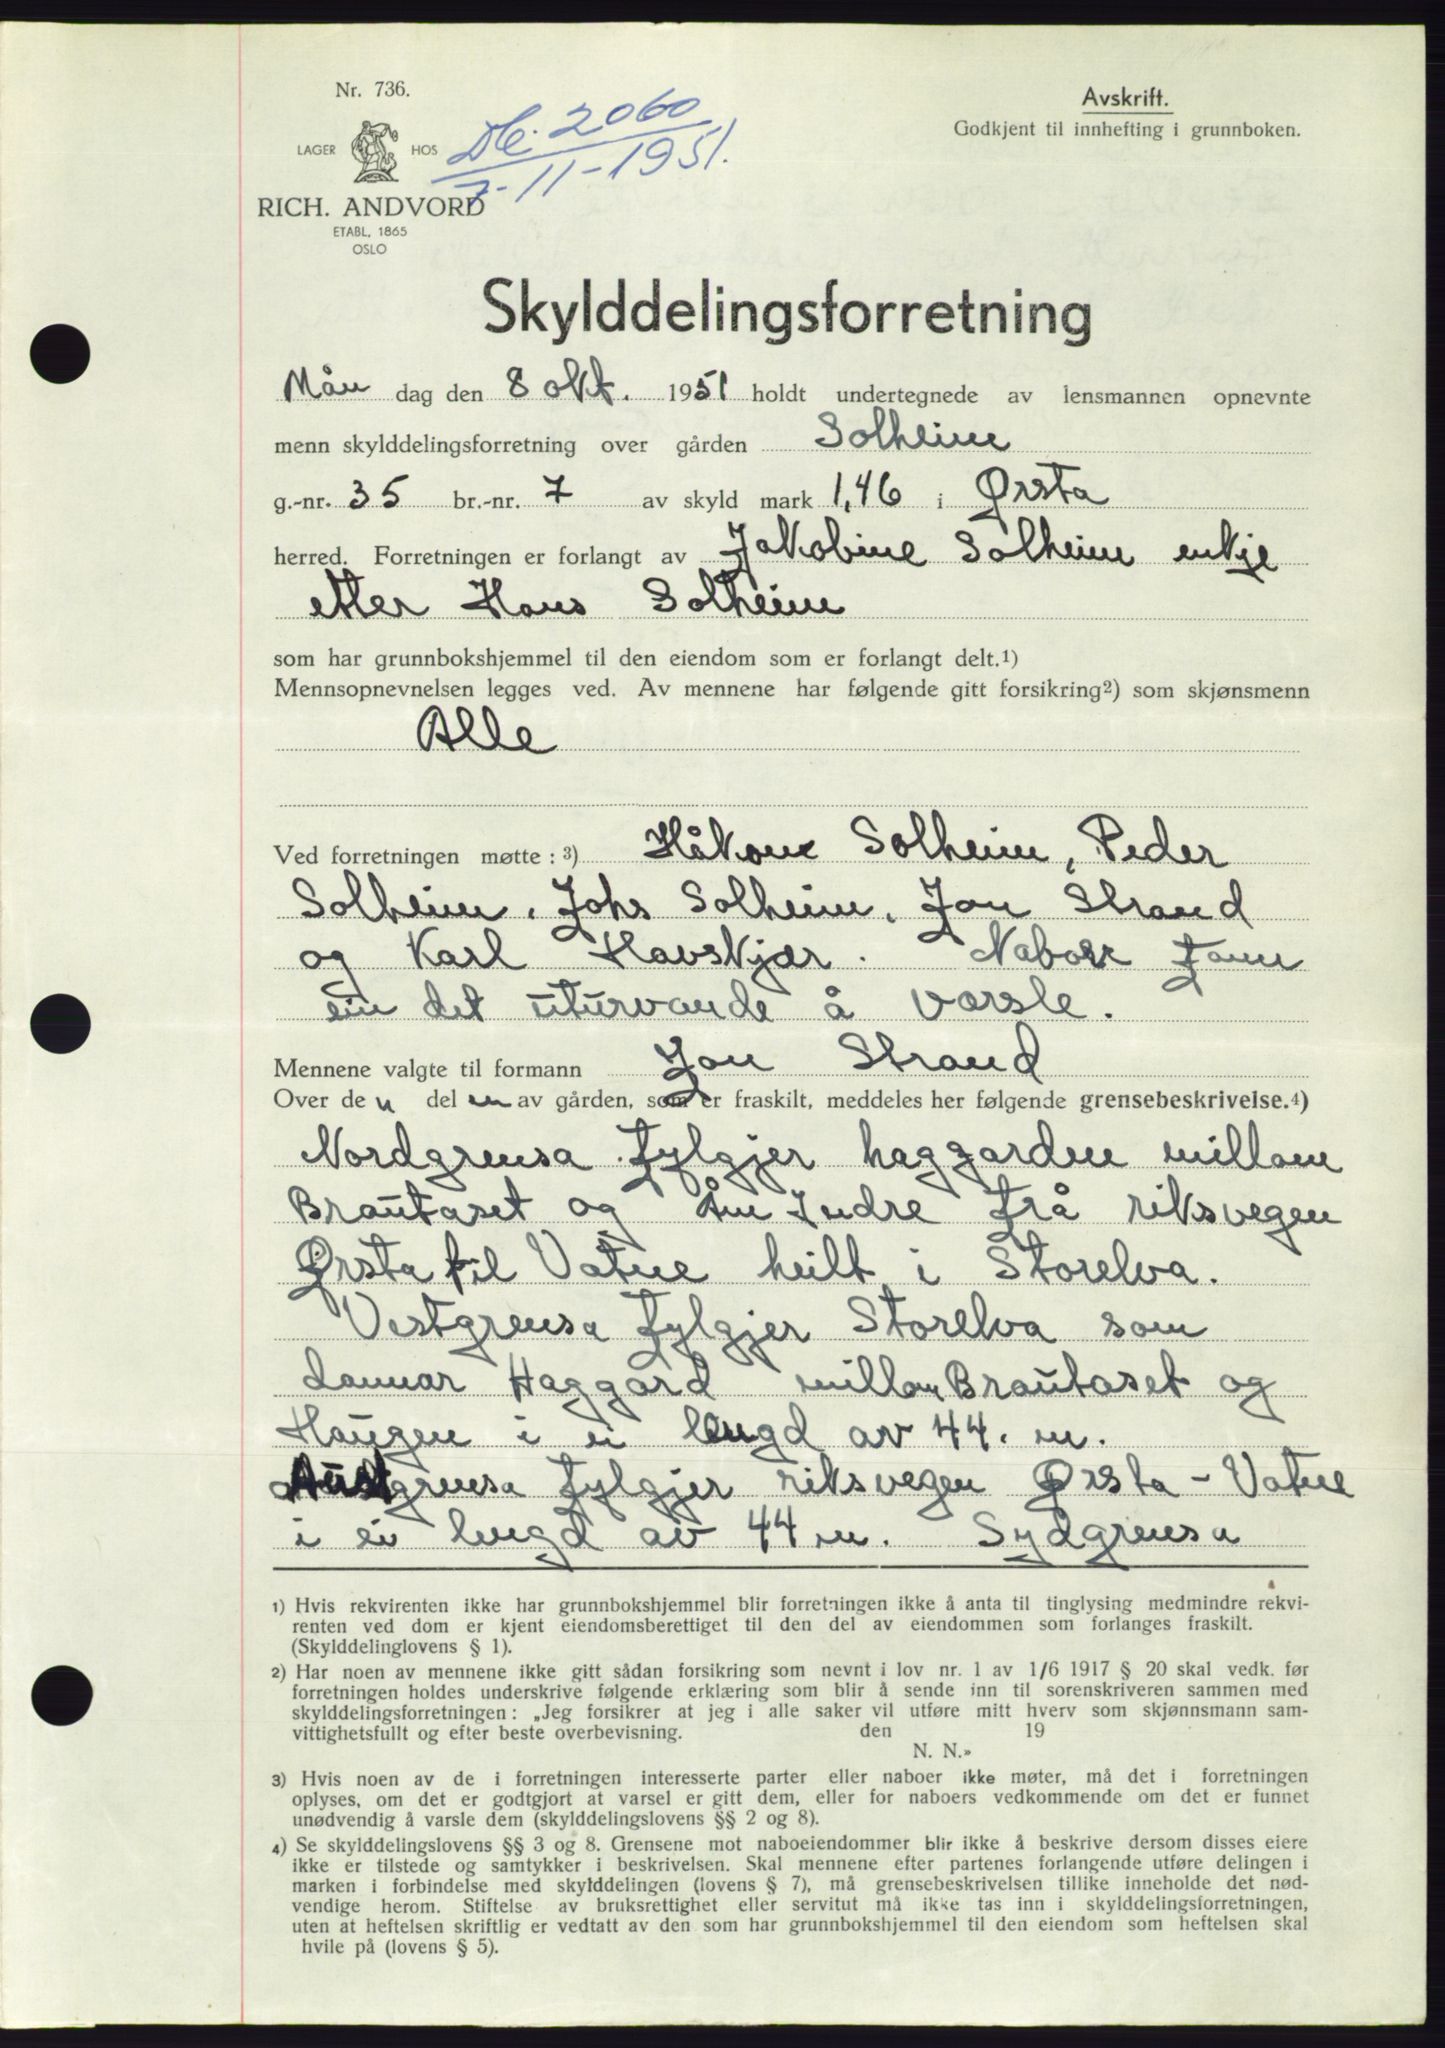 Nr. 736.
LAGER HOS
RICH. ANDVORD
ETABL. 1865
OSLO
Db. 2060
7-11-1951.
Avskrift.
Godkjent til innhefting i grunnboken.
Skylddelingsforretning
Mån dag den 8 okt. 1951 holdt undertegnede av lensmannen opnevnte
menn skylddelingsforretning over gården Solheim
g.-nr. 35 br.-nr. 7 av skyld mark 1,46 i Ørsta
herred. Forretningen er forlangt av Jakobine Solheim enkje
etter Hans Solheim
som har grunnbokshjemmel til den eiendom som er forlangt delt.1)
Mennsopnevnelsen legges ved. Av mennene har følgende gitt forsikring2) som skjønsmenn
Alle
Ved forretningen møtte: 3) Håkon Solheim, Peder
Solheim, Johs Solheim, Jon Strand
og Karl Havskjær. Naboar fann
ein det uturvande å varsle.
Mennene valgte til formann Jon Strand
Over den delen av gården, som er fraskilt, meddeles her følgende grensebeskrivelse.4)
Nordgrensa fylgjer haggarden millom
Brautaset og Åm Indre frå riksvegen
Ørsta til Vatne heilt i Storelva.
Vestgrensa fylgjer Storelva som
dannar Haggard millom Brautaset og
Haugen i ei lengd av 44. m.
Austgrensa fylgjer riksvegen Ørsta - Vatne
i ei lengd av 44 m. Sydgrensa
1) Hvis rekvirenten ikke har grunnbokshjemmel blir forretningen ikke å anta til tinglysing medmindre rekvi-
renten ved dom er kjent eiendomsberettiget til den del av eiendommen som forlanges fraskilt.
(Skylddelinglovens § 1).
2) Har noen av mennene ikke gitt sådan forsikring som nevnt i lov nr. 1 av 1/6 1917 § 20 skal vedk. før
forretningen holdes underskrive følgende erklæring som blir å sende inn til sorenskriveren sammen med
skylddelingsforretningen: „Jeg forsikrer at jeg i alle saker vil utføre mitt hverv som skjønnsmann sam-
vittighetsfullt og efter beste overbevisning. den 19
N. N.»
3) Hvis noen av de i forretningen interesserte parter eller naboer ikke møter, må det i forretningen
oplyses, om det er godtgjort at varsel er gitt dem, eller for naboers vedkommende om det er funnet
unødvendig å varsle dem (skylddelingslovens §§ 2 og 8).
4) Se skylddelingslovens §§ 3 og 8. Grensene mot naboeiendommer blir ikke å beskrive dersom disses eiere
ikke er tilstede og samtykker i beskrivelsen. Skal mennene efter partenes forlangende utføre delingen i
marken i forbindelse med skylddelingen (lovens § 7), må grensebeskrivelsen tillike inneholde det nød-
vendige herom. Stiftelse av bruksrettighet eller servitut må ikke tas inn i skylddelingsforretningen,
uten at heftelsen skriftlig er vedtatt av den som har grunnbokshjemmel til den eiendom som heftelsen skal
hvile på (lovens § 5).